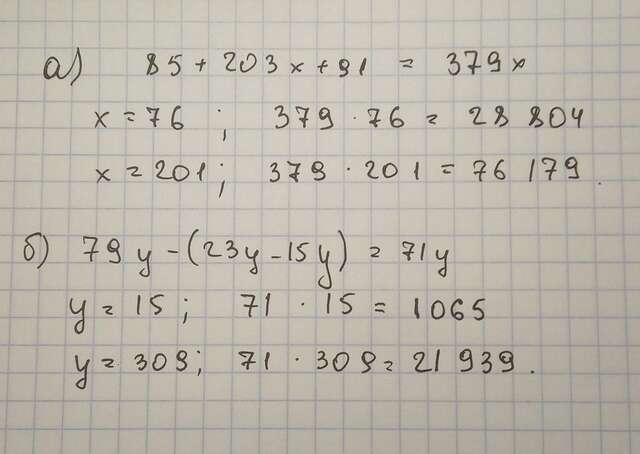 а) 85 + 203x + 91 = 379x
x = 76 ; 379 · 76 = 28 804
x = 201; 379 · 201 = 76 179.
б) 79y - (23y - 15y) = 71y
y = 15; 71 · 15 = 1065
y = 309; 71 · 309 = 21 939.